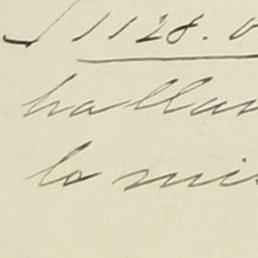 1128. 
hallan
lo mis